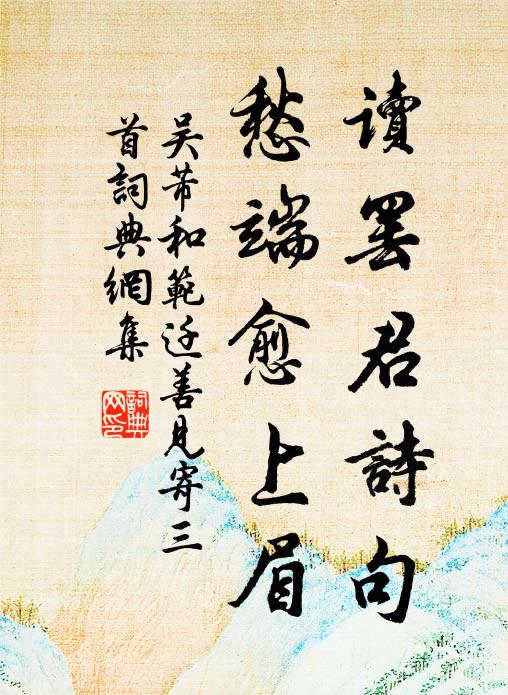 读罢君詩句
愁端愈上眉
吴芾和範迁善見寄三
首詞典網集
詞典
网印